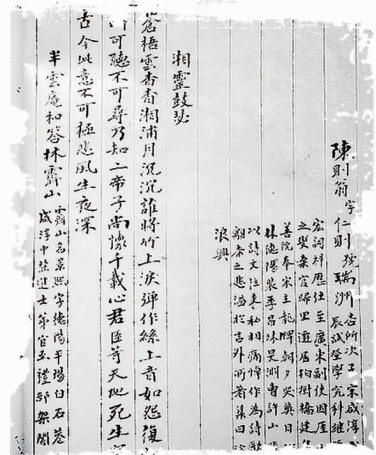 陳則翁字仁則號瑞洲 居所次子宋咸淳
辰試登學究科繼
宏詞科歷任至廣東副使因崖山
之變棄官歸里遁居柏樹橋建集
善院奉宋主龍牌朝夕哭奠日與
林德陽裴季昌林昊淵曹許山
以詩文往來私相痛悼作為詩歌
離黍之悲溢於言外所著集曰
浪興
湘靈鼓瑟
蒼梧雲杳杳湘浦月沉沉誰將竹上淚彈作絲上音如怨復
可聽不可尋乃知二帝子尚懷千載心君臣等天地死生
古今此意不可極悲風生夜深
半雲庵和答林霽山 霽山名景熙字德陽平陽白石巷
咸淳中登進士第官至禮部架閣